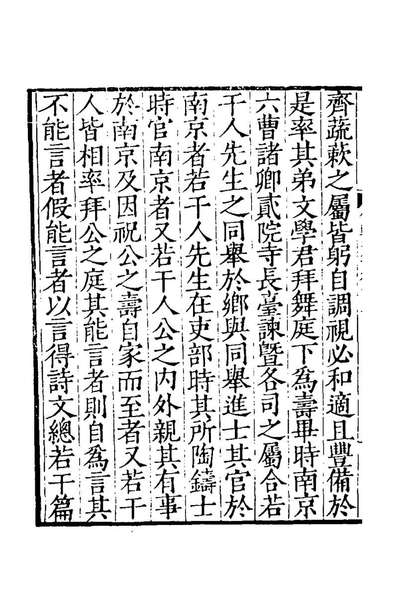 齊蔬蔌之屬皆躬自調視必和適且豐備於
是率其弟文學君拜舞庭下為壽畢時南京
六曹諸卿貳院寺長臺諫暨各司之屬合若
干人先生之同舉於鄉與同舉進士其官於
南京者若干人先生在吏部時其所陶鑄士
時官南京者又若干人公之内外親其有事
於南京及因祝公之壽自家而至者又若干
人皆相率拜公之庭其能言者則自為言其
不能言者假能言者以言得詩文總若干篇